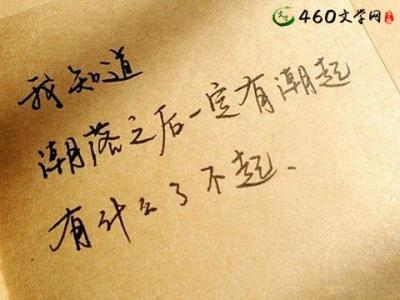 460文学网
我知道
潮落之后一定有潮起
有什么了不起、